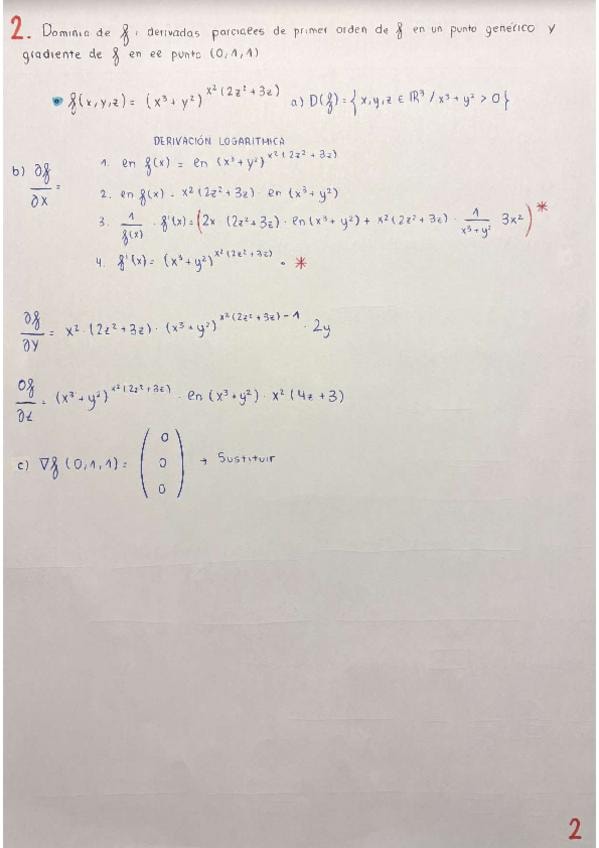 2. Dominio de f, derivadas parciales de primer orden de f en un punto genérico y
gradiente de f en el punto (0,1,1)
• f(x,y,z) = (x³+y²)^x²(2z²+3z) a) D(f) = {x,y,z ∈ ℝ³ / x³+y² > 0}
DERIVACIÓN LOGARITMICA
b) ∂f/∂x =
1. ln f(x) = ln (x³+y²)^x²(2z²+3z)
2. ln f(x) = x²(2z²+3z) · ln (x³+y²)
3. 1/f(x) · f'(x) = (2x · (2z²+3z) · ln(x³+y²) + x²(2z²+3z) · 1/x³+y² 3x²) *
4. f'(x) = (x³+y²)^x²(2z²+3z) · *
∂f/∂y = x² · (2z²+3z) · (x³+y²)^x²(2z²+3z)-1 · 2y
∂f/∂z = (x³+y²)^x²(2z²+3z) · ln (x³+y²) · x² (4z+3)
c) ∇f (0,1,1) = (0 0 0) → Sustituir
2